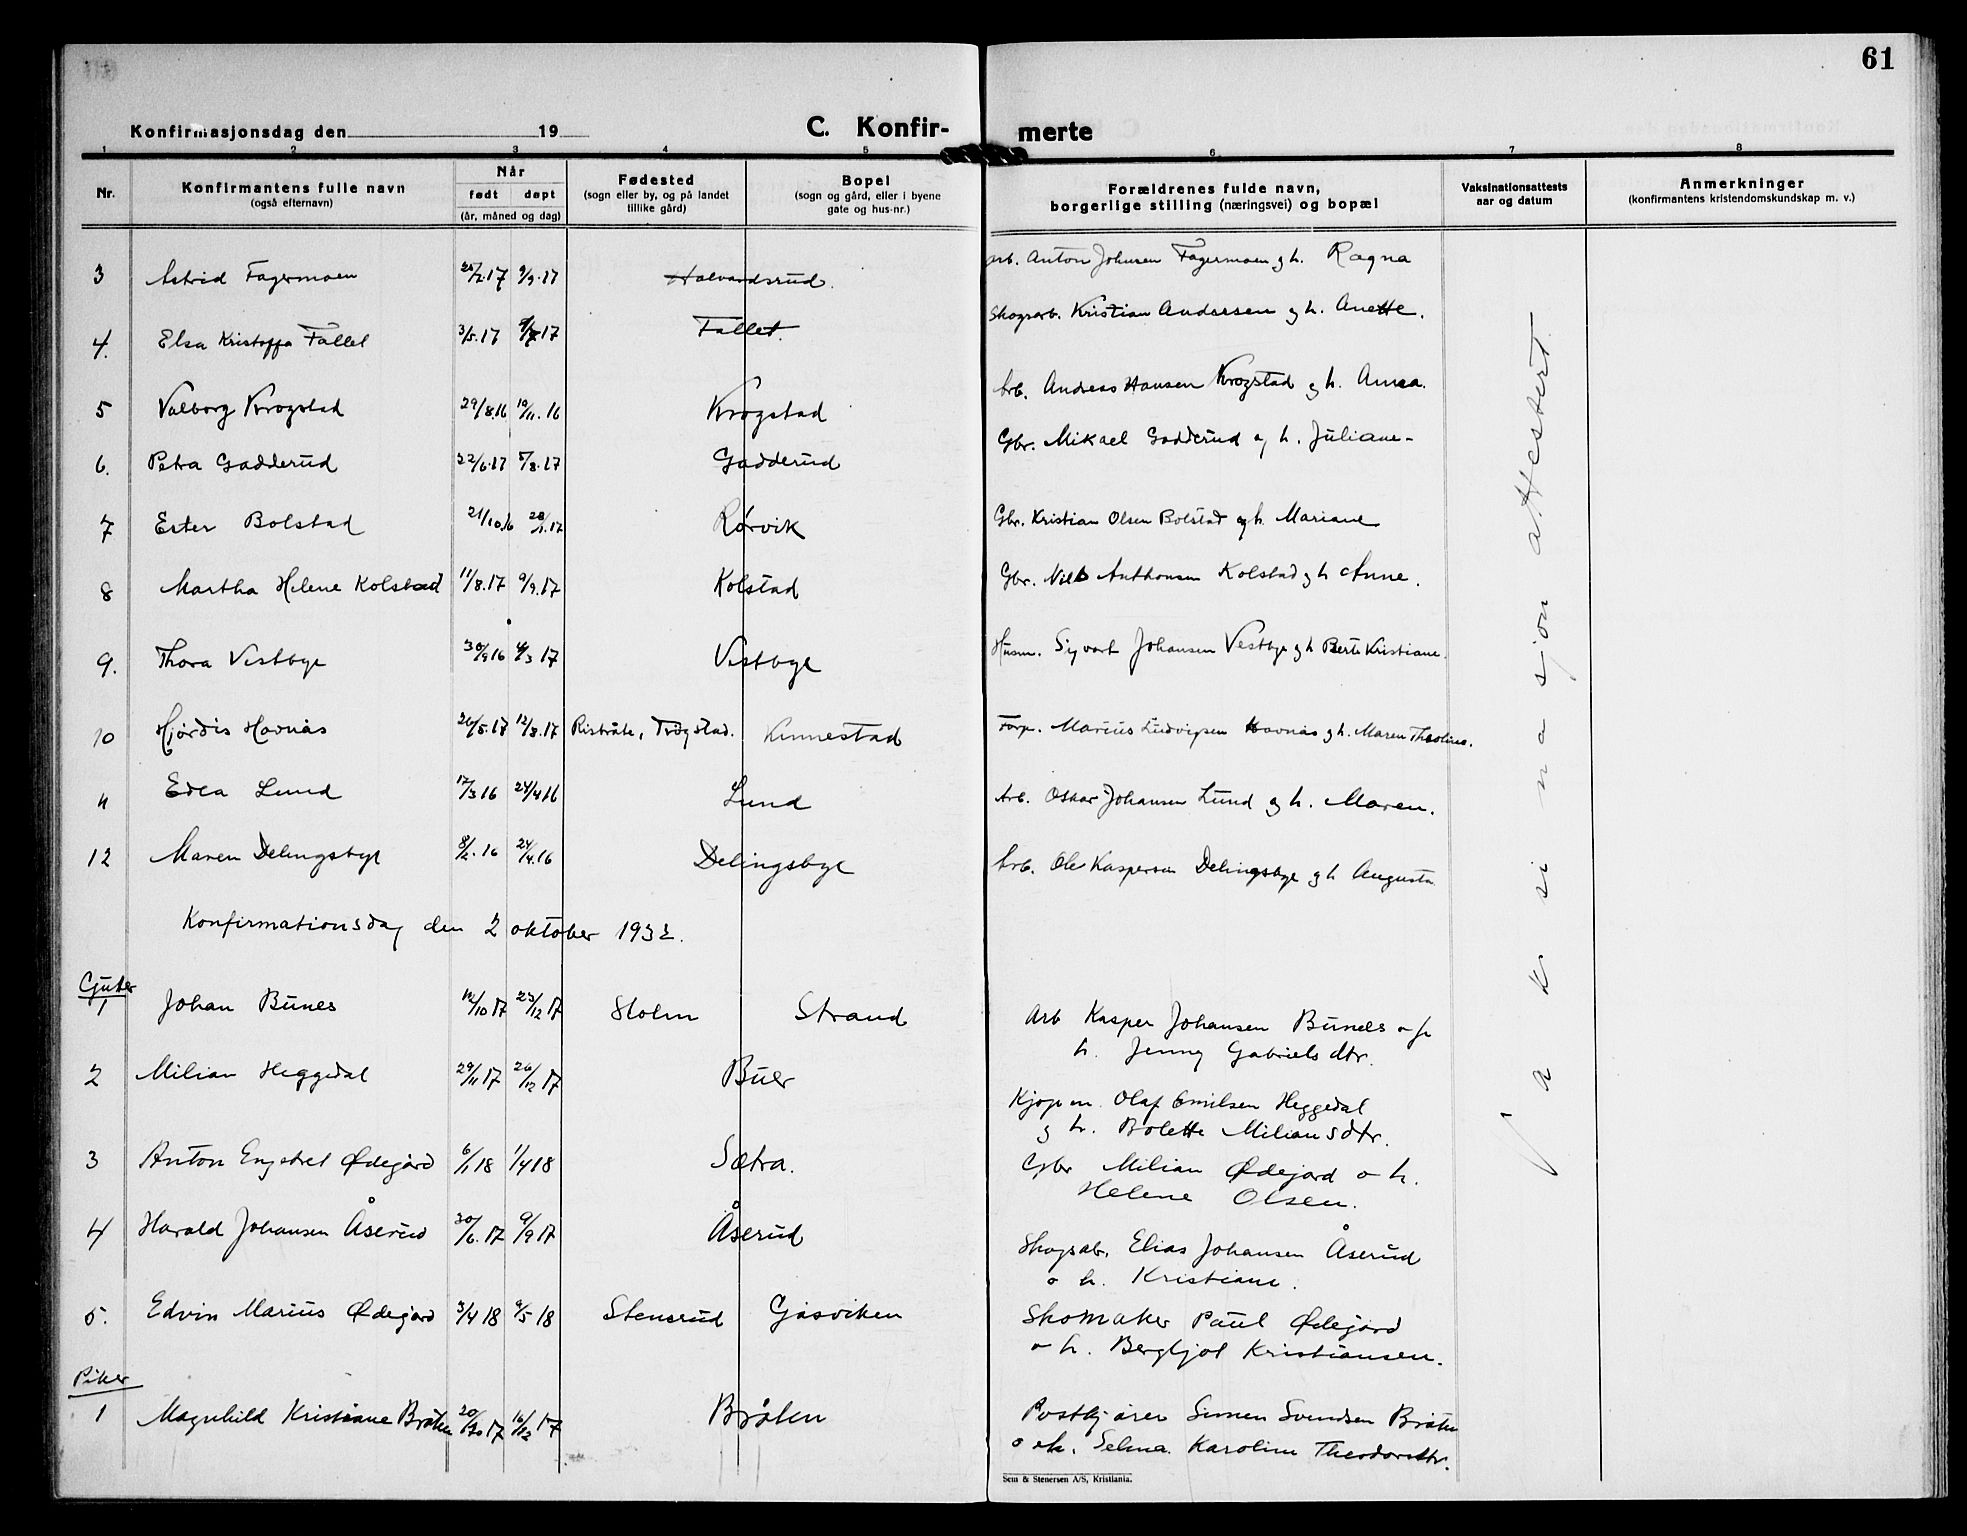 61
Konfirmasjonsdag den 19
C. Konfir- merte
1 2 3 4 5 6 7 8
Nr. Konfirmantens fulle navn (også efternavn) Når født døpt (år, måned og dag) Fødested (sogn eller by, og på landet tillike gård) Bopel (sogn og gård, eller i byene gate og hus-nr.) Forældrenes fulde navn, borgerlige stilling (næringsvei) og bopæl Vaksinationsattests aar og datum Anmerkninger (konfirmantens kristendomskundskap m. v.)
3 Astrid Fagermoen 9/9.17 Halvardsrud. Anton Johnsen Fagermoen g h. Ragna
4. Elsa Kristoffa Fallet 3/5.17 Fallet. Skogsarb. Kristian Andersen g h. Anette.
5 Valborg Krogstad 29/8.16 19/11.16 Krogstad Arb. Andreas Hansen Krogstad g h. Anna.
6. Petra Gadderud 22/6.17 5/8.17 Gadderud Gbr. Mikael Gadderud g h. Juliane-
7 Ester Bolstad 21/10.16 28/1.17 Rørvik Gbr. Kristian Olsen Bolstad og h. Mariane
8 Martha Helene Kolstad 11/8.17 9/9.17 Kolstad Gbr. Nils Anthonsen Kolstad g h Anne.
9. Thora Vestbye 30/9 16 4/3 17 Vestbye Husm. Sigvart Johansen Vestbye g h Berte Kristiane.
10 Hjørdis Havnås 26/5.17 12/8.17 Ristvåte, Trøgstad. Kinnestad Forp. Marius Ludvigsen Havnås g h. Maren Theoline.
11 Edla Lund 17/3 16 24/4 16 Lund Arb. Oskar Johansen Lund g h. Maren.
12 Maren Delingsbye 8/2.16 24/4.16 Delingsbye Arb. Ole Kaspersen Delingsbye g h Augusta
Konfirmationsdag den 2 oktober 1932.
Gutter
1 Johan Bunes 12/10 17 23/12 17 Holm Strand Arb Kasper Johansen Bunes
h. Jenny Gabrielsdtr.
2 Milian Heggedal 29/11 17 26/12 17 Buer Kjøpm. Olaf Emilsen Heggedal
g h. Bolette Miliansdtr.
3 Anton Engebret Ødegård 6/1 18 1/4 18 Sætra. Gbr Milian Ødegård o h.
Helene Olsen.
4 Harald Johansen Åserud 30/6.17 9/9 17 Åserud Skogsab. Elias Johansen Åserud
o h. Kristiane.
5. Edvin Marius Ødegård 3/4 18 9/5 18 Stensrud Gåsviken Skomaker Paul Ødegård
o h. Bergljot Kristiansen.
Piker
1 Magnhild Kristiane Bråten 20/10 17 16/12 17 Bråten Postkjører Simen Svendsen Bråten
o h. Selma Karoline Theodorsdtr.
Vaksinasjon attestert
Sem & Stenersen A/S, Kristiania.